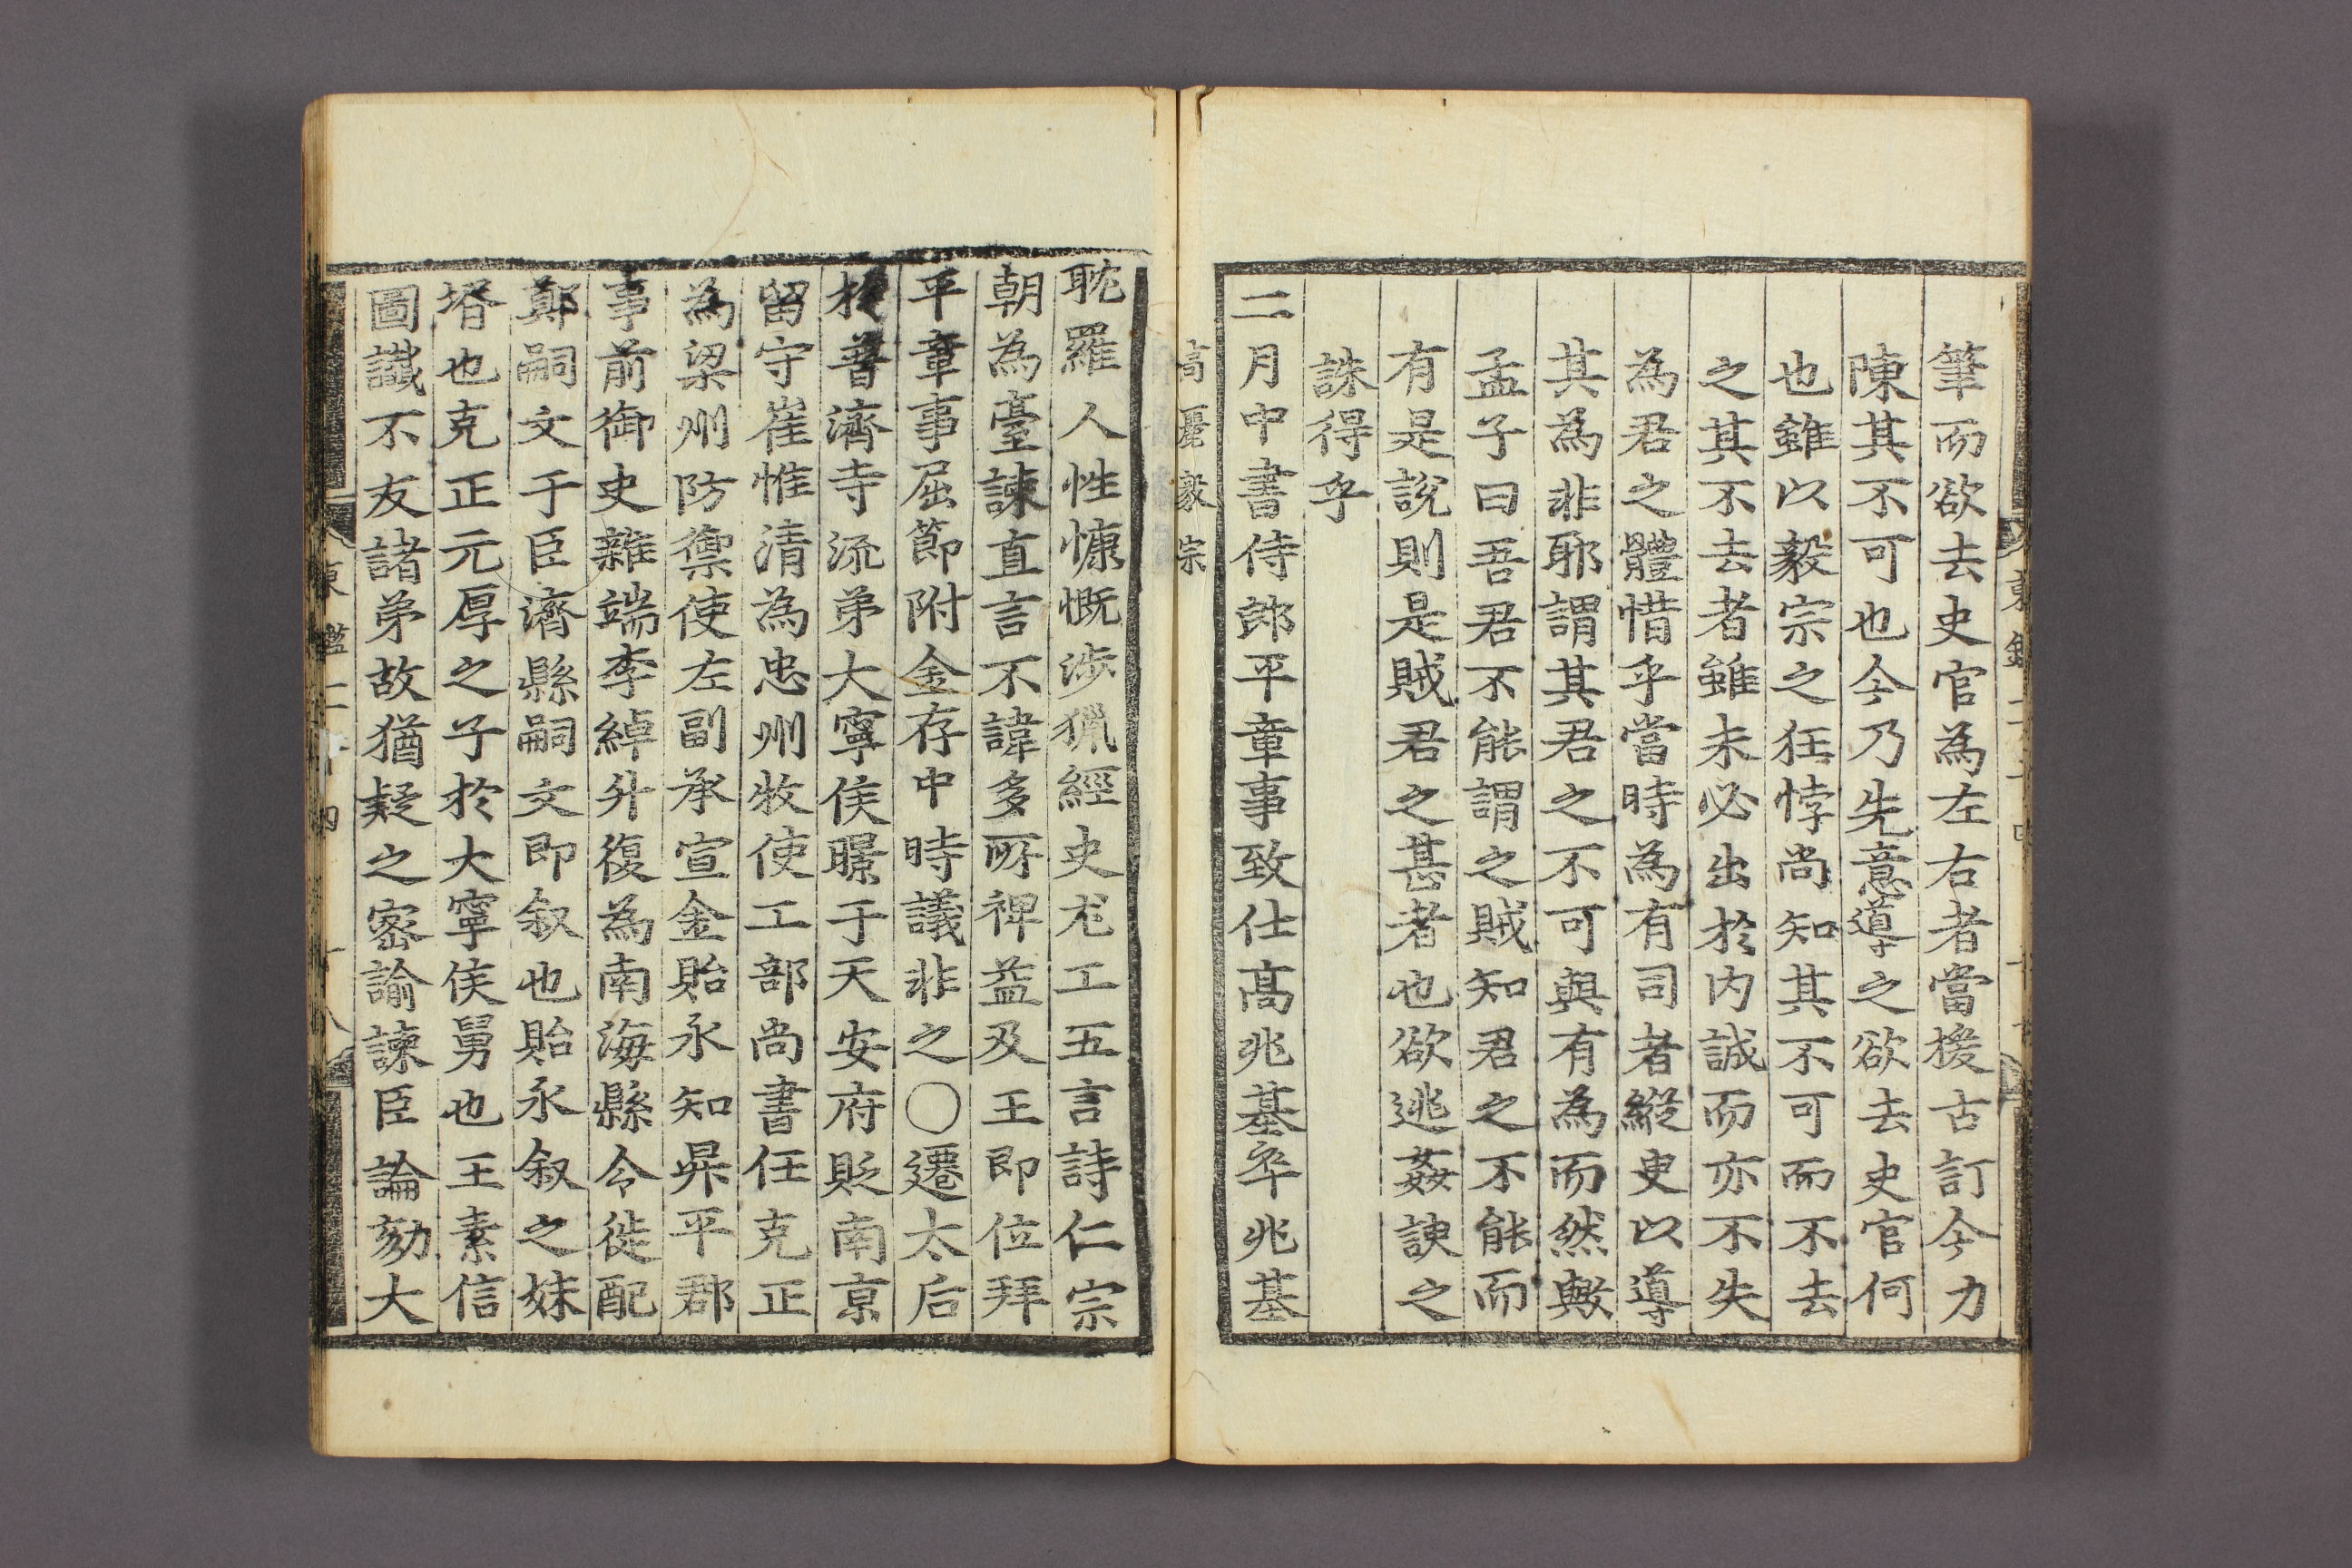 筆而欲去史官為左右者當援古訂今力
陳其不可也今乃先意導之欲去史官何
也雖以毅宗之狂悖尚知其不可而不去
之其不去者雖未必出於内誠而亦不失
為君之體惜乎當時為有司者縱吏以導
其為非耶謂其君之不可與有為而然歟
孟子曰吾君不能謂之賊知君之不能而
有是說則是賊君之甚者也欲逃姦諛之
誅得乎
二月中書侍郎平章事致仕髙兆基卒兆基
高麗毅宗
耽羅人性慷慨涉獵經史尤工五言詩仁宗
朝為臺諫直言不諱多所裨益及王即位拜
平章事屈節附金存中時議非之○遷太后
於普濟寺流弟大寧侯暻于天安府貶南京
留守崔惟清為忠州牧使工部尚書任克正
為梁州防禦使左副承宣金貽永知昇平郡
事前御史雜端李綽升復為南海縣令徙配
鄭嗣文于臣濟縣嗣文即叙也貽永叙之妹
壻也克正元厚之子於大寧侯舅也王素信
圖讖不友諸弟故猶疑之密諭諫臣論劾大
東鑑二十四
十八